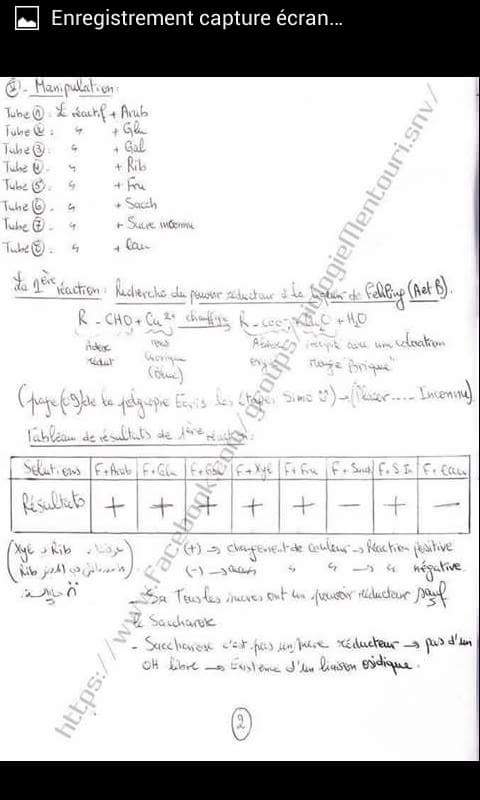 Enregistrement capture écran...
V - Manipulation:
Tube ① : Le réactif + Arab
Tube ② : 〃 + Glu
Tube ③ : 〃 + Gal
Tube ④ : 〃 + Rib
Tube ⑤ : 〃 + Fru
Tube ⑥ : 〃 + Sacch
Tube ⑦ : 〃 + Sucre inconnu
Tube ⑧ : 〃 + Eau
La 1ère réaction: Recherche du pouvoir réducteur à la liqueur de Fehling (A et B).
R - CHO + Cu2+ chauffage R - COO- + Cu2O + H2O
réduit
(bleue) rouge "brique"
de la polycopie Ecris les étapes
Tableau de résultats de 1ère réaction:
Solutions F+Arab F+Glu F+Gal F+Xyl F+Fru F+Sacc F+S.In F+Eau
Résultats + + + + + - + -
(+) → changement de couleur → Réaction positive
(-) → aucun 〃 〃 → 〃 négative.
Tous les sucres ont un pouvoir réducteur sauf
le Saccharose
- Saccharose c'est pas un sucre réducteur → pas d'un
OH libre → Existence d'un liaison osidique.
2
https://www.facebook.com/groups/biologieMentouri.snv/